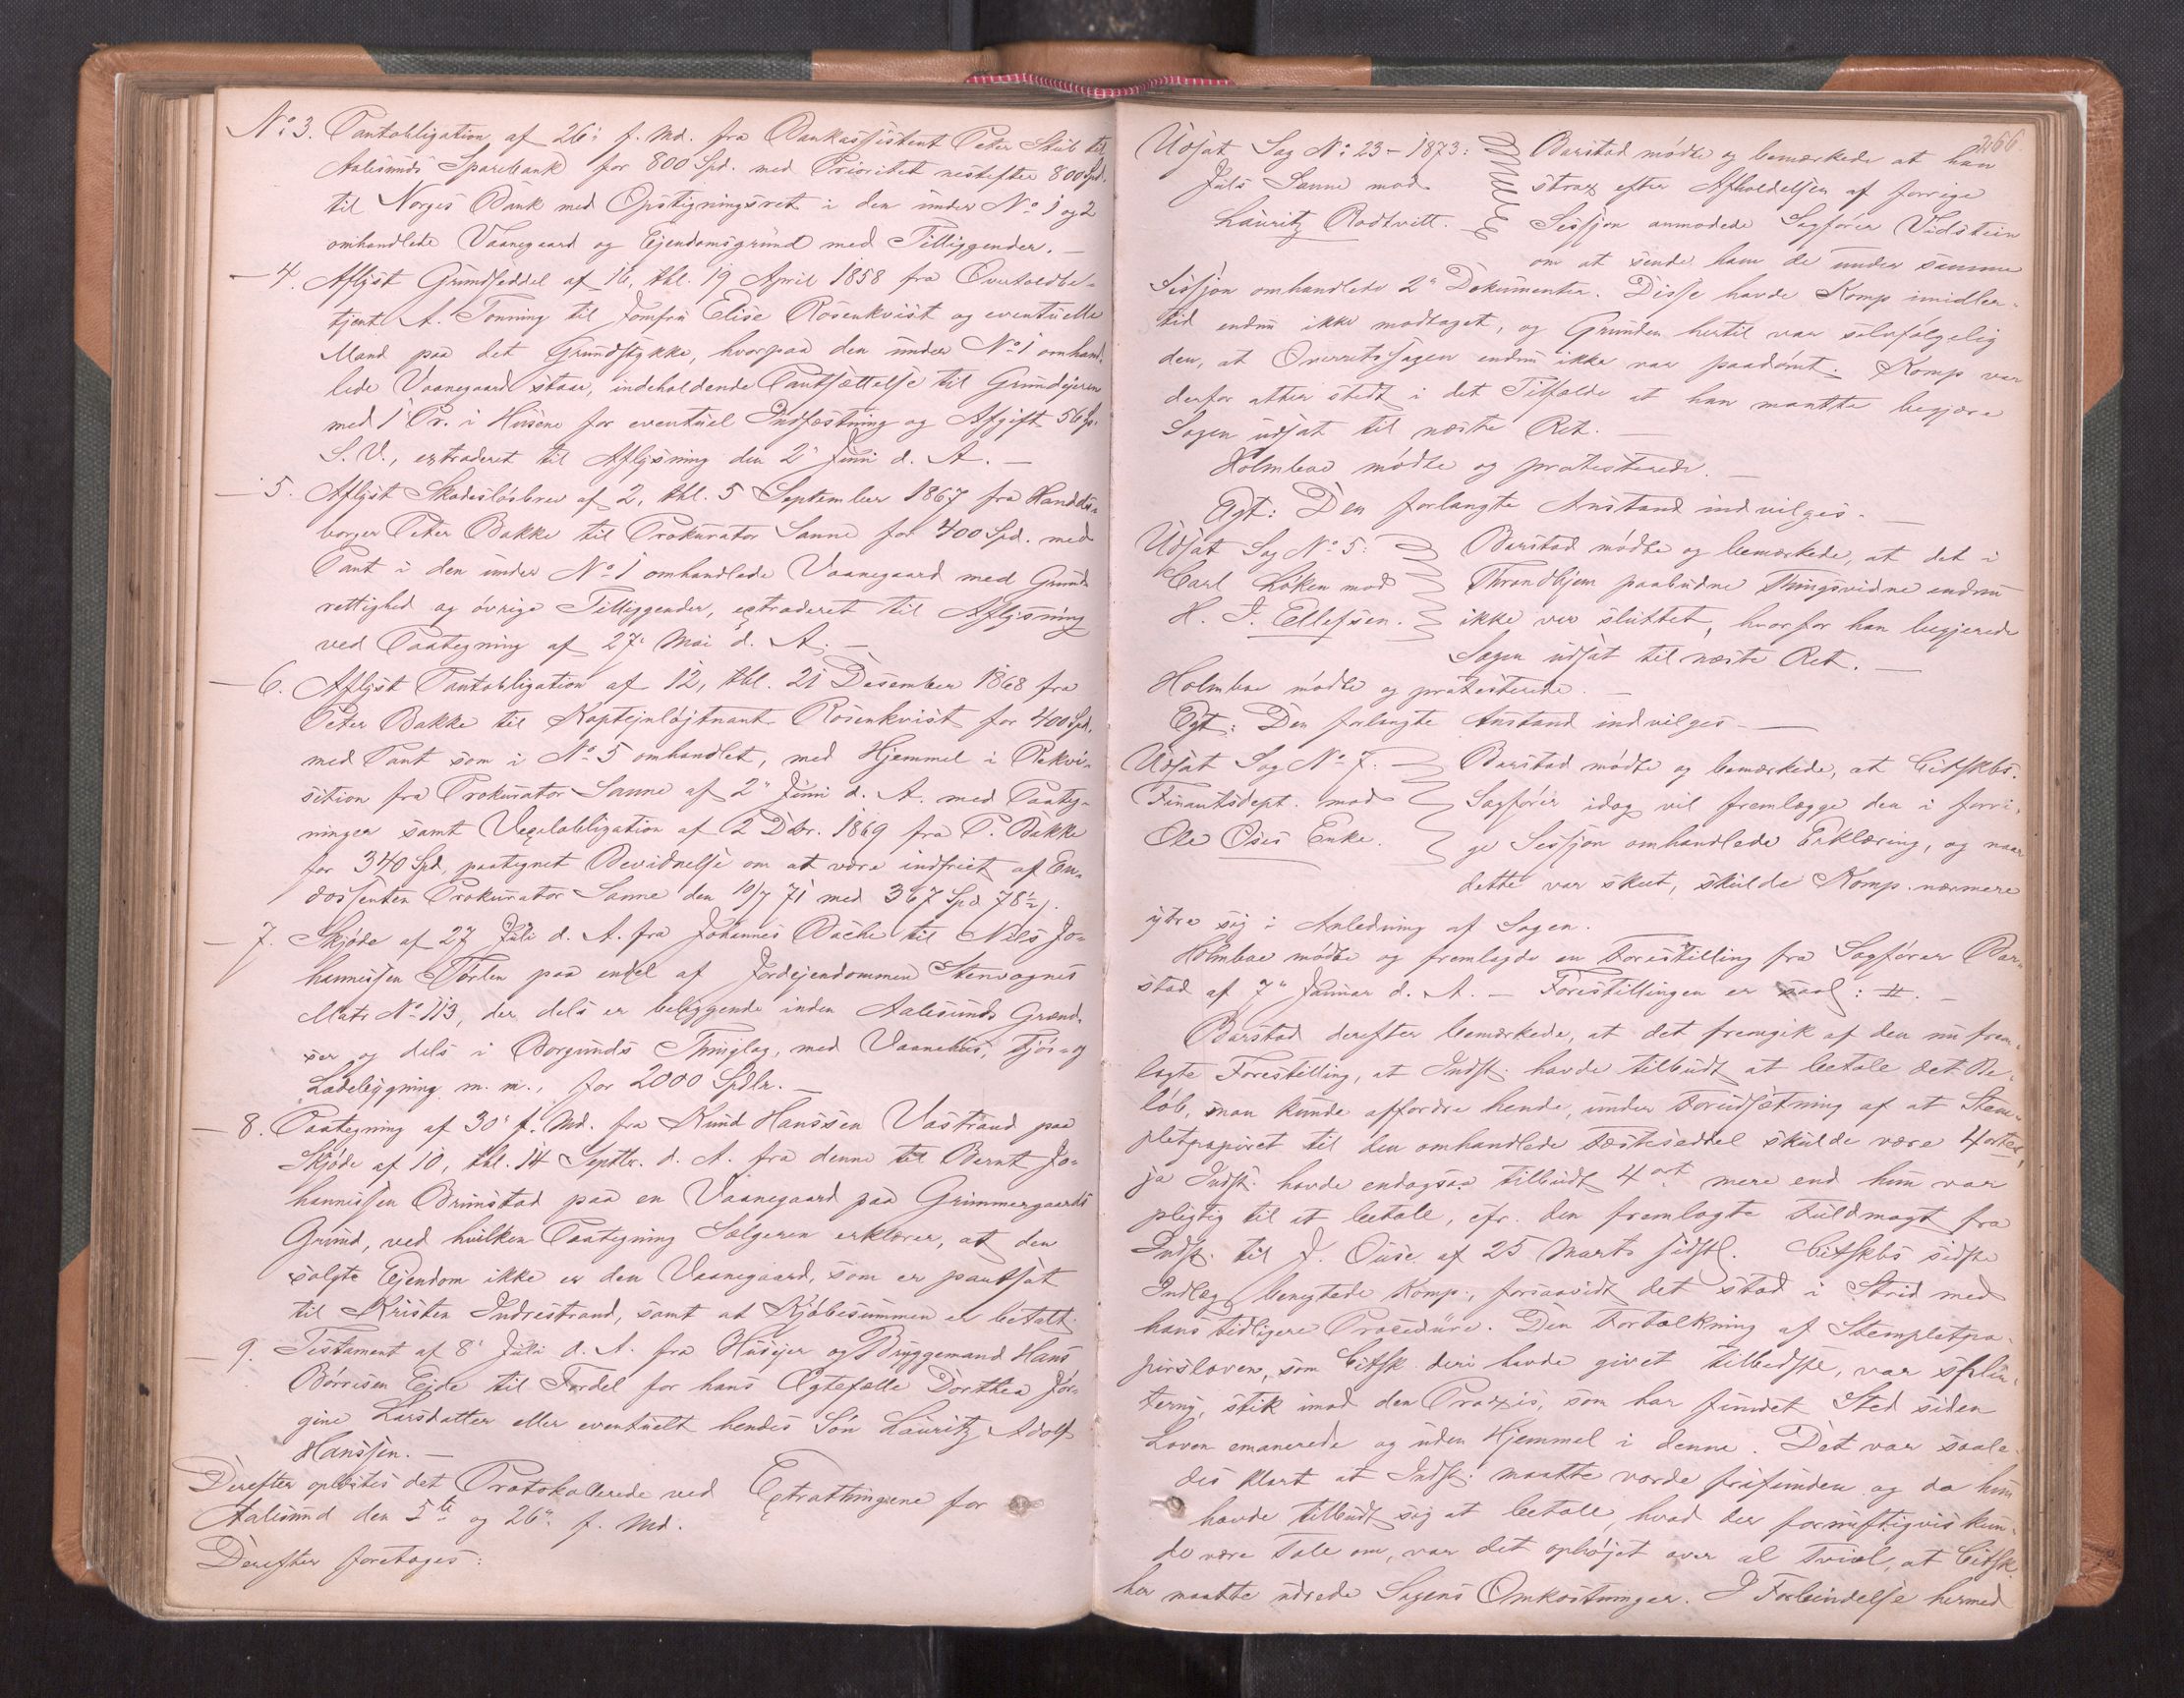 No 3. Pantobligation af 26' f. Md. fra Bankassistent Peter Skub til
Aalesunds Sparebank for 800 Spd. med Prioritet nestefter 800 Spd.
til Norges Bank med Opstigningsret i den under No 1 og 2
omhandlede Vaanegaard og Ejendomsgrund med Tilliggender. —
— 4. Aflyst Grundseddel af 16, thl. 19 April 1858 fra Overtoldbe-
tjent A. Tonning til Jomfru Elise Rosenkvist og eventuelle
Mand paa det Grundstykke, hvorpaa den under No 1 omhand-
lede Vaanegaard staar, indeholdende Pantsættelse til Grundejeren
med 1' Pr. i Husene for eventuel Indfæstning og Afgift 56
S. V., extraderet til Aflysning den 2' Juni d. A. —
— 5. Aflyst Skadesløsbrev af 2, thl. 5 September 1867 fra Handels-
borger Peter Bakke til Prokurator Sanne for 400 Spd. med
Pant i den under No 1 omhandlede Vaanegaard med Grund-
rettighed og øvrige Tilliggender, extraderet til Aflysning
ved Paategning af 27' Mai d. A. —
— 6. Aflyst Pantobligation af 12, thl. 21 Desember 1868 fra
Peter Bakke til Kaptejnløjtnant Rosenkvist for 400 Spd.
med Pant som i No 5 omhandlet, med Hjemmel i Rekvi-
sition fra Prokurator Sanne af 2" Juni d. A. med Paateg-
ninger samt Vexelobligation af 2 Dbr. 1869 fra P. Bakke
for 340 Spd, paategnet Bevidnelse om at være indfriet af En-
dossenten Prokurator Sanne den 10/7 71 med 367 Spd 78½
— 7. Skjøde af 27 Juli d. A. fra Johannes Bache til Nils Jo-
hannessen Torlen paa endel af Jordejendommen Stenvognes
Matr No 113, der dels er beliggende inden Aalesunds Grænd-
ser og dels i Borgunds Thinglag, med Vaanehus, Fjøs- og
Ladebygning m. m., for 2000 Spdlr. —
— 8. Paategning af 30' f. Md. fra Knud Hanssen Vastrand paa
Skjøde af 10, thl. 14 Septbr. d. A. fra denne til Bernt Jo-
hannessen Brunstad paa en Vaanegaard paa Grimmergaards
Grund, ved hvilken Paategning Sælgeren erklærer, at den
solgte Ejendom ikke er den Vaanegaard, som er pantsat
til Kristen Indrestrand, samt at Kjøbesummen er betalt.
— 9. Testament af 8' Juli d. A. fra Husejer og Bryggemand Hans
Børresen Eide til Fordel for hans Ægtefælle Dorthea Jør-
gine Larsdatter eller eventuelt hendes Søn Lauritz Adolf
Hanssen. —
Derefter oplæstes det Protokollerede ved Extrathingene for
Aalesund den 5te og 26" f. Md.
Derefter foretoges:
266.
Udsat Sag No 23-1873:
Juls Sanne mod
Lauritz Rodtvitt.
Barstad mødte og bemærkede at han
strax efter Afholdelsen af forrige
Session anmodede Sagfører Vidstein
om at sende ham de under samme
Session omhandlede 2" Dokumenter. Disse havde Komp imidler-
tid endnu ikke modtaget, og Grunden hertil var selvfølgelig
den, at Overretssagen endnu ikke var paadømt. Komp var
derfor atter stedt i det Tilfælde at han maatte begjære
Sagen udsat til næste Ret. —
Holmboe mødte og protesterede. —
Egt: Den forlangte Anstand indvilges. —
Udsat Sag No 5:
Carl Løken mod
H. J. Ellefsen.
Barstad mødte og bemærkede, at det i
Thrandhjem paabudne Thingsvidne endnu
ikke var sluttet, hvorfor han begjerede
Sagen udsat til næste Ret. —
Holmboe mødte og protesterede. —
Egt: Den forlangte Anstand indvilges —
Udsat Sag No 7.
Finantsdept. mod
Ole Oses Enke.
Barstad mødte og bemærkede, at Citskbs.
Sagfører idag vil fremlægge den i forri-
ge Session omhandlede Erklæring, og naar
dette var skeet, skulde Komp. nærmere
ytre sig i Anledning af Sagen.
Holmboe mødte og fremlagde en Forestilling fra Sagfører Bar-
stad af 7" Januar d. A. — Forestillingen er saal: II. —
Barstad derefter bemærkede, at det fremgik af den nu frem-
lagte Forestilling, at Indst. havde tilbudt at betale det Be-
løb, man kunde affordre hende, under Forudsætning af at Stem-
pletpapiret til den omhandlede Fæsteseddel skulde være 4 orter,
ja Indst. havde endogsaa tilbudt 4 ort mere end hun var
pligtig til at betale, cfr. den fremlagte Fuldmagt fra
Indst. til J. Ouse af 25 Marts sidstl. Citskbs sidste
Indlæg benegtede Komp., forsaavidt det stod i Strid med
hans tidligere Procedure. Den Fortolkning af Stempletpa-
pirsloven, som Citsk. deri havde givet tilbedste, var splin-
terny, stik imod den Praxis, som har fundet Sted siden
Loven emanerede og uden Hjemmel i denne. Det var saale-
des klart at Indst. maatte vorde frifunden og da hun
havde tilbudt sig at betale, hvad der fornuftigvis kun-
de være Tale om, var det ophøjet over al Tvivl, at Citsk.
her maatte udrede Sagens Omkostninger. I Forbindelse hermed